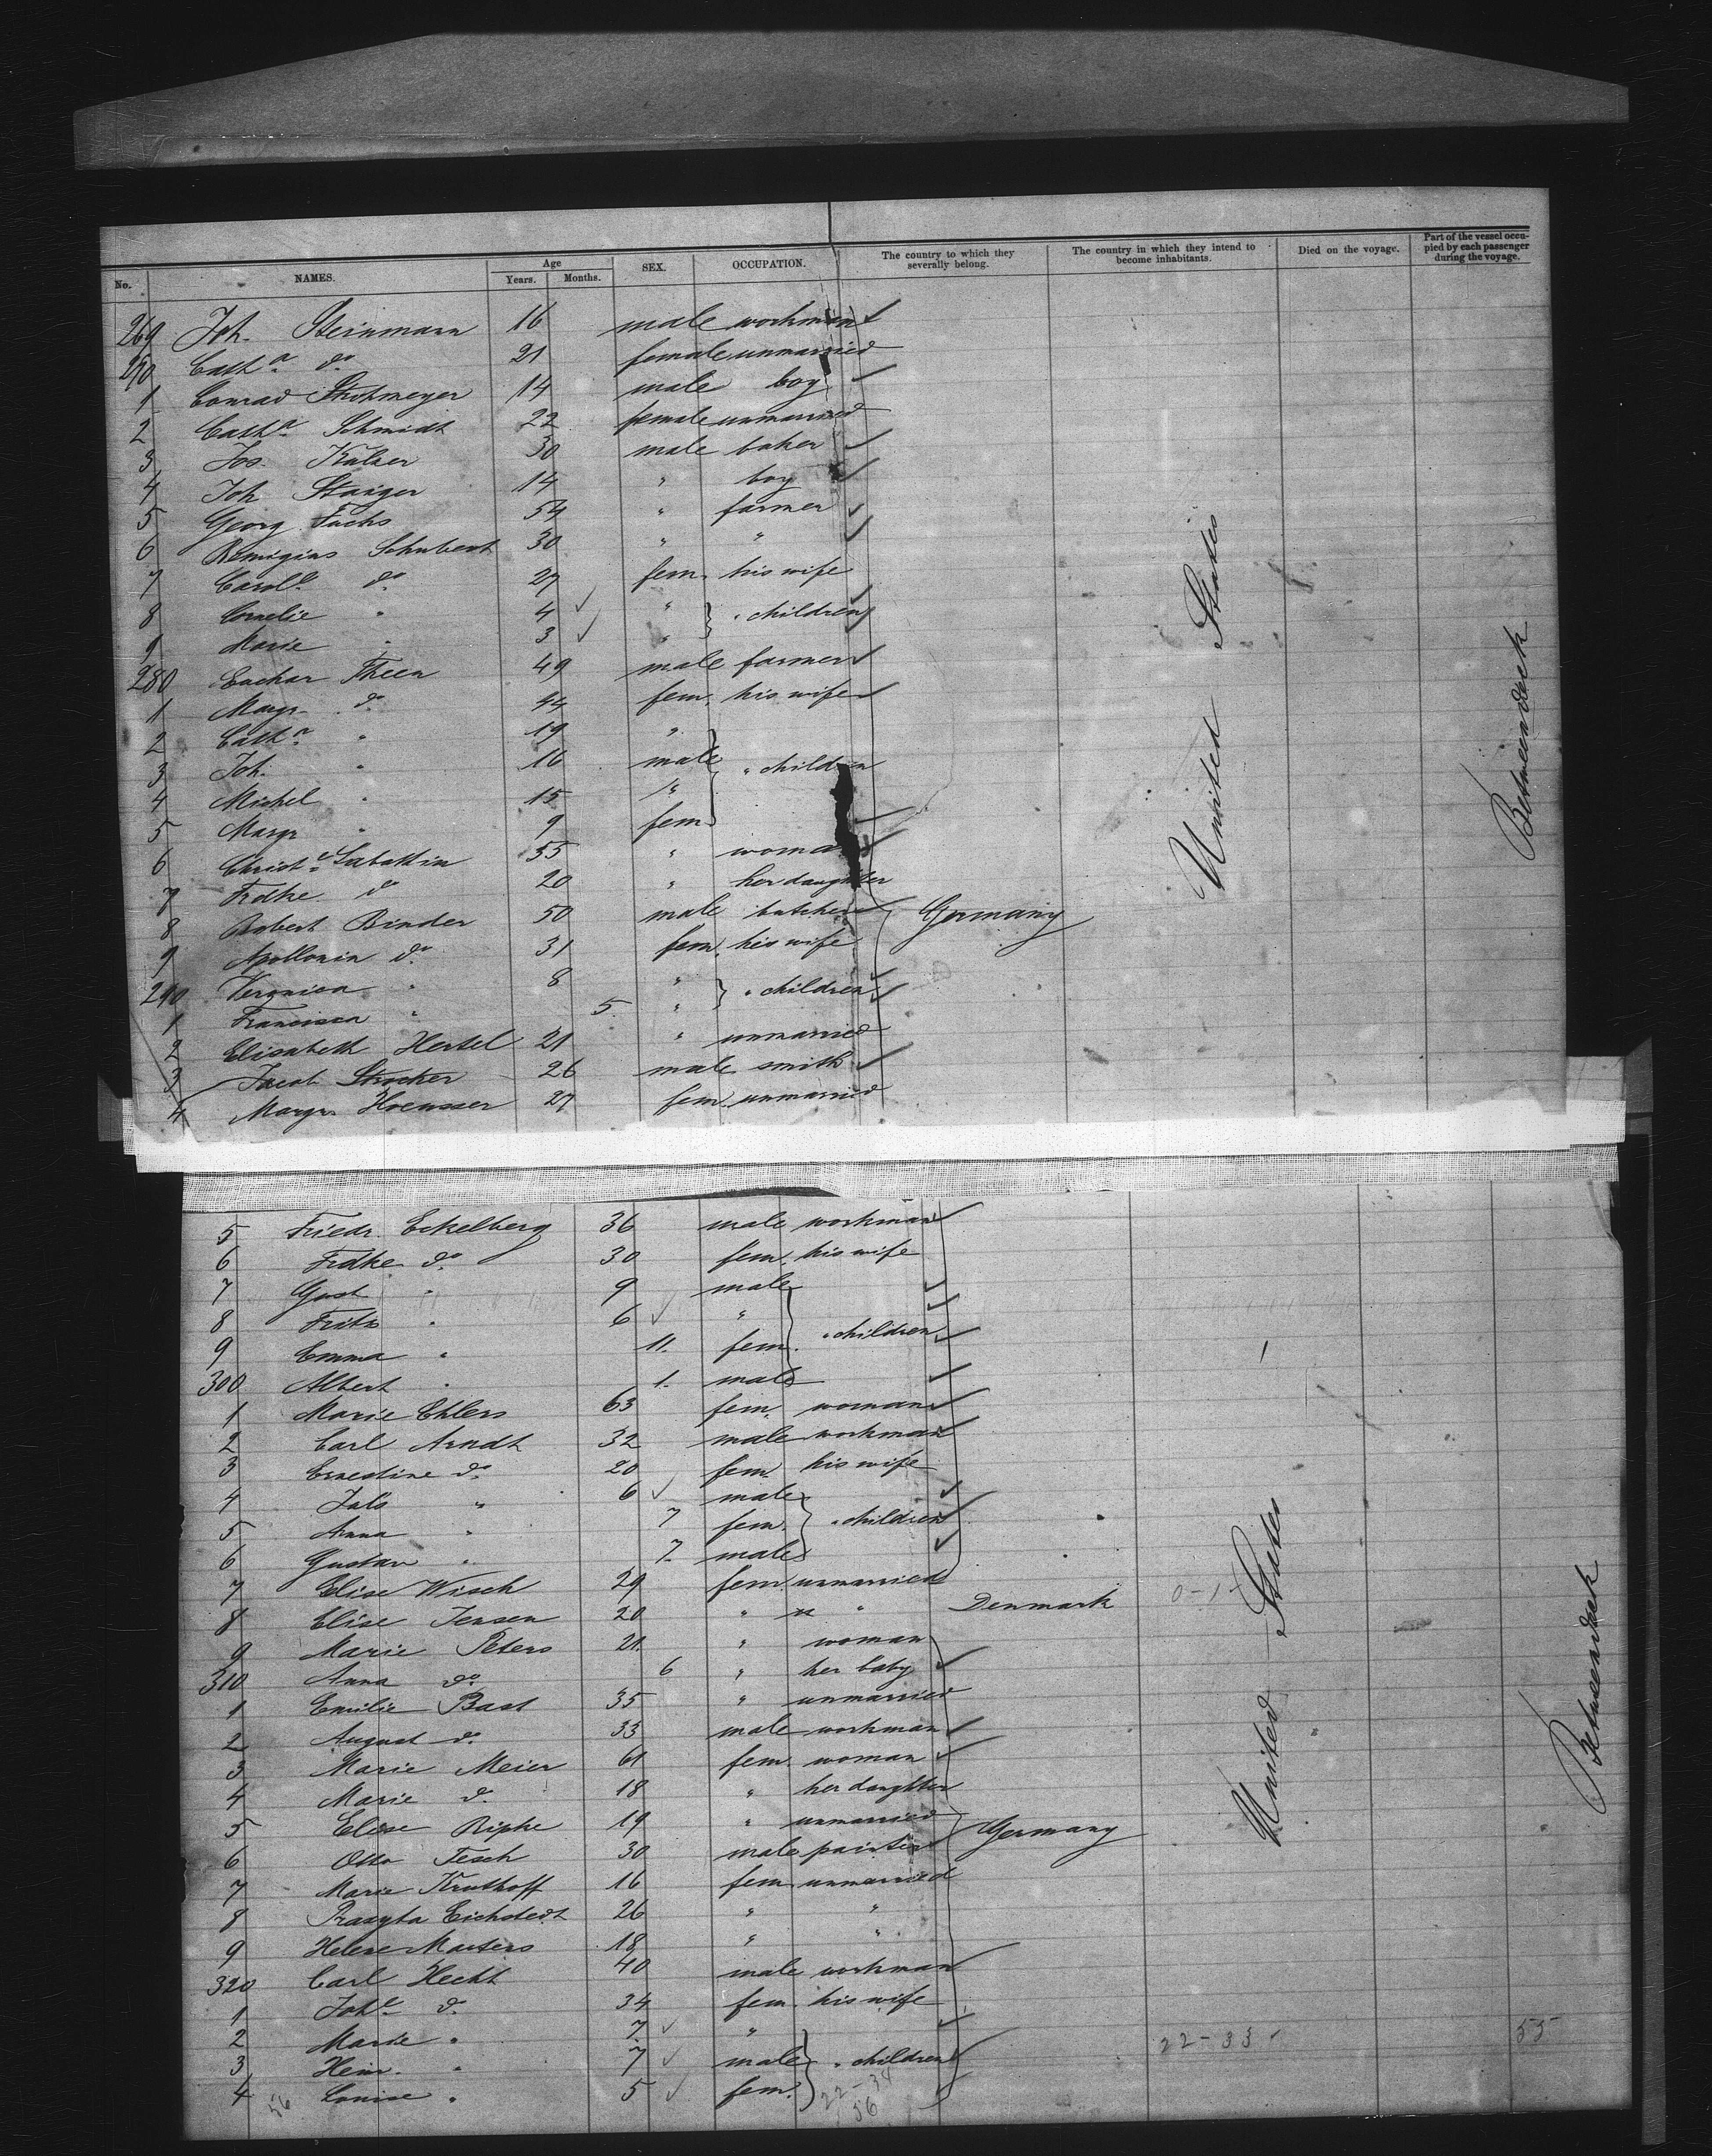 No. NAMES. Age Years. Months. SEX. OCCUPATION. The country to which they severally belong. The country in which they intend to become inhabitants. Died on the voyage. Part of the vessel occupied by each passenger during the voyage.
269 Joh. Steinmann 16 male workman
270 Cath.a do 21 female unmarried
1 Conrad Strohmeyer 14 male boy
2 Cath.a Schmidt 22 female unmarried
3 Jos. Kalzer 30 male baker
4 Joh Staiger 14 " boy
5 Georg Fuchs 54 " farmer
6 Remigius Schubert 30 " "
7 Carol.e do 27 fem. his wife
8 Cornelie " 4 " " children
9 Marie " 3 "
280 Euchar Theen 49 male farmer
1 Margr. do 44 fem. his wife
2 Cath.a " 19 "
3 Joh. " 16 male " children
4 Michel " 15 "
5 Margr " 9 fem
6 Christ.e Sabattin 55 " woman
7 Frdke do 20 " her daughter
8 Robert Binder 50 male butcher Germany
9 Apollonia do 31 fem. his wife
290 Veronica " 8 " " children
1 Francisca " 5. "
2 Elisabeth Hertel 21 " unmarried
3 Jacob Strocker 26 male smith
4 Margr. Hoeusser 27 fem. unmarried
United States
Betweendeck
5 Friedr. Eckelberg 36 male workman
6 Frdke do 30 fem. his wife
7 Gust " 9 male
8 Fritz " 6 "
9 Emma " 11. fem. " children
300 Albert " 1. male
1 Marie Ehlers 63 fem. woman
2 Carl Arndt 32 male workman
3 Ernestine do 20 fem. his wife
4 Juls " 6 male
5 Anna " 7 fem. " children
6 Gustav " 7. male
7 Elise Wisch 29 fem. unmarried
8 Elise Jensen 20 " " Denmark 0-1
9 Marie Peters 21. " woman
310 Anna do 6 " her baby
1 Emilie Bast 35 " unmarried
2 August do 33 male workman
3 Marie Meier 61 fem. woman
4 Marie d. 18 " her daughter
5 Elise Ripke 19 " unmarried Germany
6 Otto Tesch 30 male painter
7 Marie Kruthoff 16 fem unmarried
8 Eichstedt 26 " "
9 Helene Martens 18 " "
320 Carl Hecht 40 male workman
1 Joh.e d. 34 fem. his wife
2 Marie " 7 "
3 Heinr. " 7 male " children
4 Louise " 5 fem.
United States
Betweendeck
22-33
55
56
22-34
56